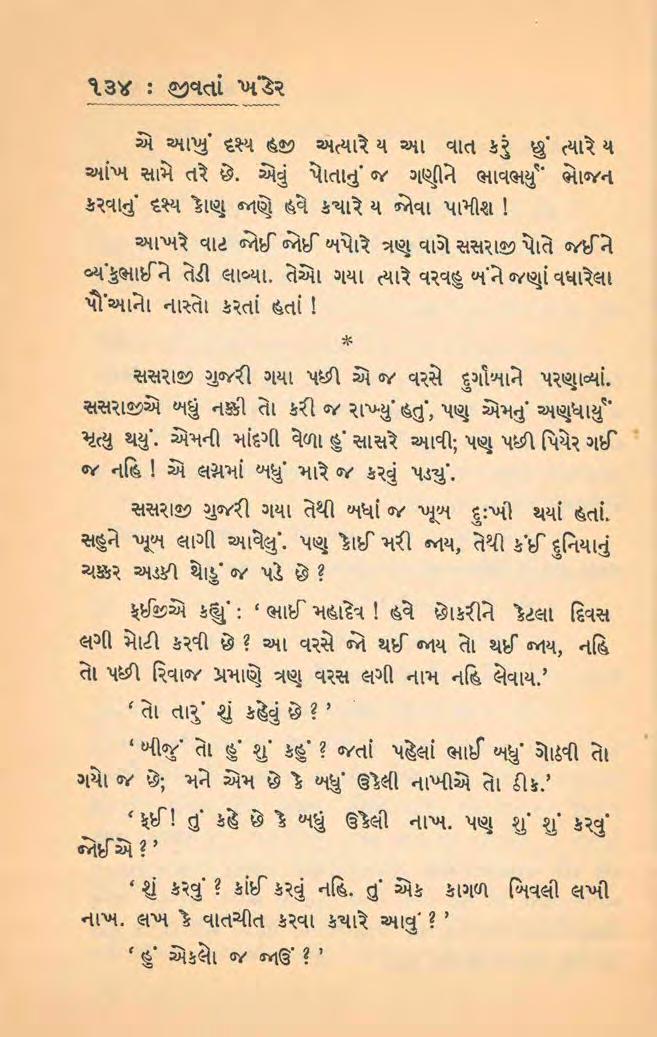 ૧૩૪ : જીવતાં ખંડેર
એ આખું દૃશ્ય હજી અત્યારે ય આ વાત કરું છું ત્યારે ય
આંખ સામે તરે છે. એવું પોતાનું જ ગણીને ભાવભર્યું ભોજન
કરવાનું દૃશ્ય કોણ જાણે હવે કચારે ય જોવા પામીશ !
આખરે વાટ જોઈ જોઈ બપોરે ત્રણ વાગે સસરાજી પોતે જઈને
વ્યંકુભાઈને તેડી લાવ્યા. તેઓ ગયા ત્યારે વરવહુ બંને જણાં વધારેલા
પૌંઆનો નાસ્તો કરતાં હતાં !
*
સસરાજી ગુજરી ગયા પછી એ જ વરસે દુર્ગાબાને પરણાવ્યાં.
સસરાજીએ બધું નક્કી તો કરી જ રાખ્યું હતું, પણ એમનું અણધાર્યું
મૃત્યુ થયું. એમની માંદગી વેળા હું સાસરે આવી; પણ પછી પિયેર ગઈ
જ નહિ ! એ લગ્નમાં બધું મારે જ કરવું પડ્યું.
સસરાજી ગુજરી ગયા તેથી બધાં જ ખૂબ દુઃખી થયાં હતાં.
સહુને ખૂબ લાગી આવેલું. પણ કોઈ મરી જાય, તેથી કંઈ દુનિયાનું
ચક્કર અડકી થોડું જ પડે છે ?
ફઈજીએ કહ્યું : ‘ ભાઈ મહાદેવ ! હવે છોકરીને કેટલા દિવસ
લગી મોટી કરવી છે ? આ વરસે જો થઈ જાય તો થઈ જાય, નહિ
તો પછી રિવાજ પ્રમાણે ત્રણ વરસ લગી નામ નહિ લેવાય.’
‘ તો તારું શું કહેવું છે ? ’
‘ બીજું તો હું શું કહું ? જતાં પહેલાં ભાઈ બધું ગોઠવી તો
ગયો જ છે; મને એમ છે કે બધું ઉકેલી નાખીએ તો ઠીક.’
‘ ફઈ! તું કહે છે કે બધું ઉકેલી નાખ. પણ શું શું કરવું
જોઈએ ? ’
‘ શું કરવું ? કાંઈ કરવું નહિ. તું એક કાગળ બિવલી લખી
નાખ. લખ કે વાતચીત કરવા કચારે આવું ? ’
‘ હું એકલો જ જાઉં ? ’